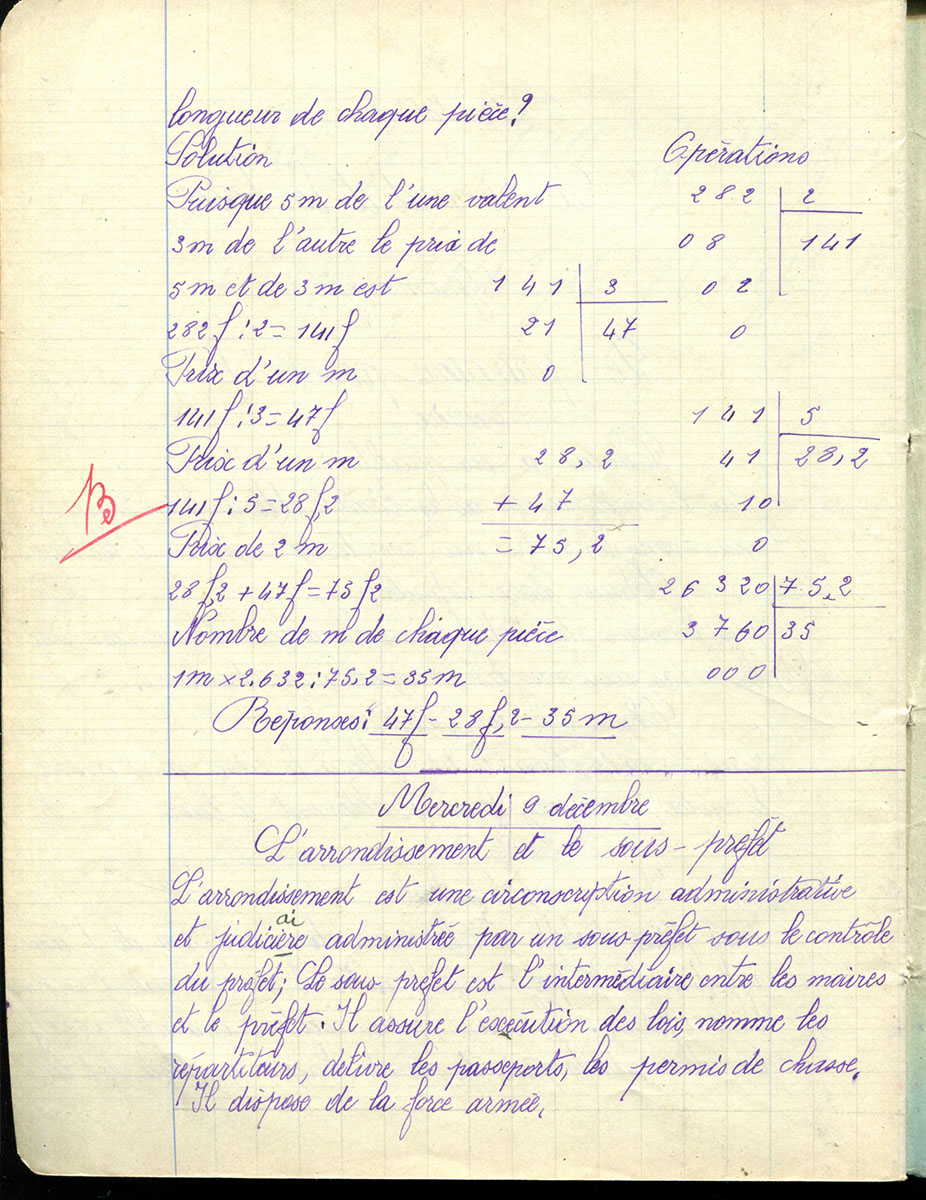 longueur de chaque pièce?
Solution
Opérations
Puisque 5m de l'une valent
3m de l'autre le prix de
5m et de 3m est
282f : 2 = 141f
Prix d'un m
141f : 3 = 47f
Prix d'un m
141f : 5 = 28f,2
Prix de 2 m
28f,2 + 47f = 75f2
Nombre de m de chaque pièce
1m × 2.632 : 75,2 = 35m
Réponses : 47f - 28f,2 - 35m
282 | 2
08 | 141
02
0
141 | 3
21 | 47
0
141 | 5
41 | 28,2
10
0
28,2
+ 47
= 75,2
26320 | 75,2
3760 | 35
000
B
Mercredi 9 décembre
L'arrondissement et le sous-préfet
L'arrondissement est une circonscription administrative
ai
et judicière administrée par un sous-préfet sous le contrôle
du préfet; Le sous préfet est l'intermédiaire entre les maires
et le préfet. Il assure l'exécution des lois, nomme les
répartiteurs, délivre les passeports, les permis de chasse.
Il dispose de la force armée.